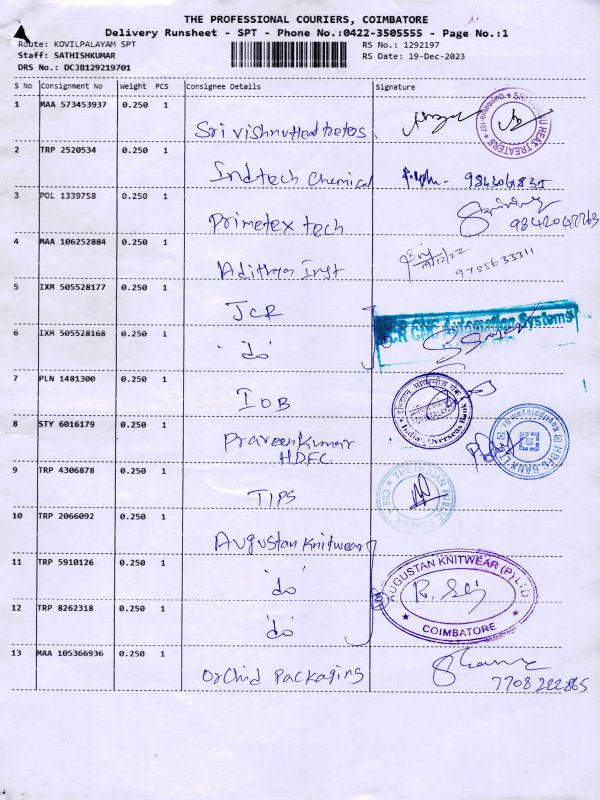 THE PROFESSIONAL COURIERS, COIMBATORE
Delivery Runsheet - SPT - Phone No.:0422-3505555 - Page No.:1
Route: KOVILPALAYAM SPT
RS No.: 1292197
Staff: SATHISHKUMAR
RS Date: 19-Dec-2023
DRS No.: DCJB129219701
S No Consignment No Weight PCS Consignee Details Signature
1 MAA 573453937 0.250 1
Sri Vishnu Heat treters
2 TRP 2520534 0.250 1
Indtech chemical
3 POL 1339758 0.250 1
Primetex tech
4 MAA 106252884 0.250 1
Adithya Inst 9755633311
5 IXM 505528177 0.250 1
JCR
CNC Automation Systems
6 IXM 505528168 0.250 1
"do"
7 PLN 1481300 0.250 1
IOB
Indian Overseas Bank
8 STY 6016179 0.250 1
Praveenkumar
HDFC
HDFC BANK LTD
9 TRP 4306878 0.250 1
TIPS
THE INDIAN PUBLIC SCHOOL
10 TRP 2066092 0.250 1
Augustan Knitwear
11 TRP 5910126 0.250 1
"do"
AUGUSTAN KNITWEAR (P) LTD
COIMBATORE
12 TRP 8262318 0.250 1
"do"
13 MAA 105366936 0.250 1
Orchid Packaging
7708222865